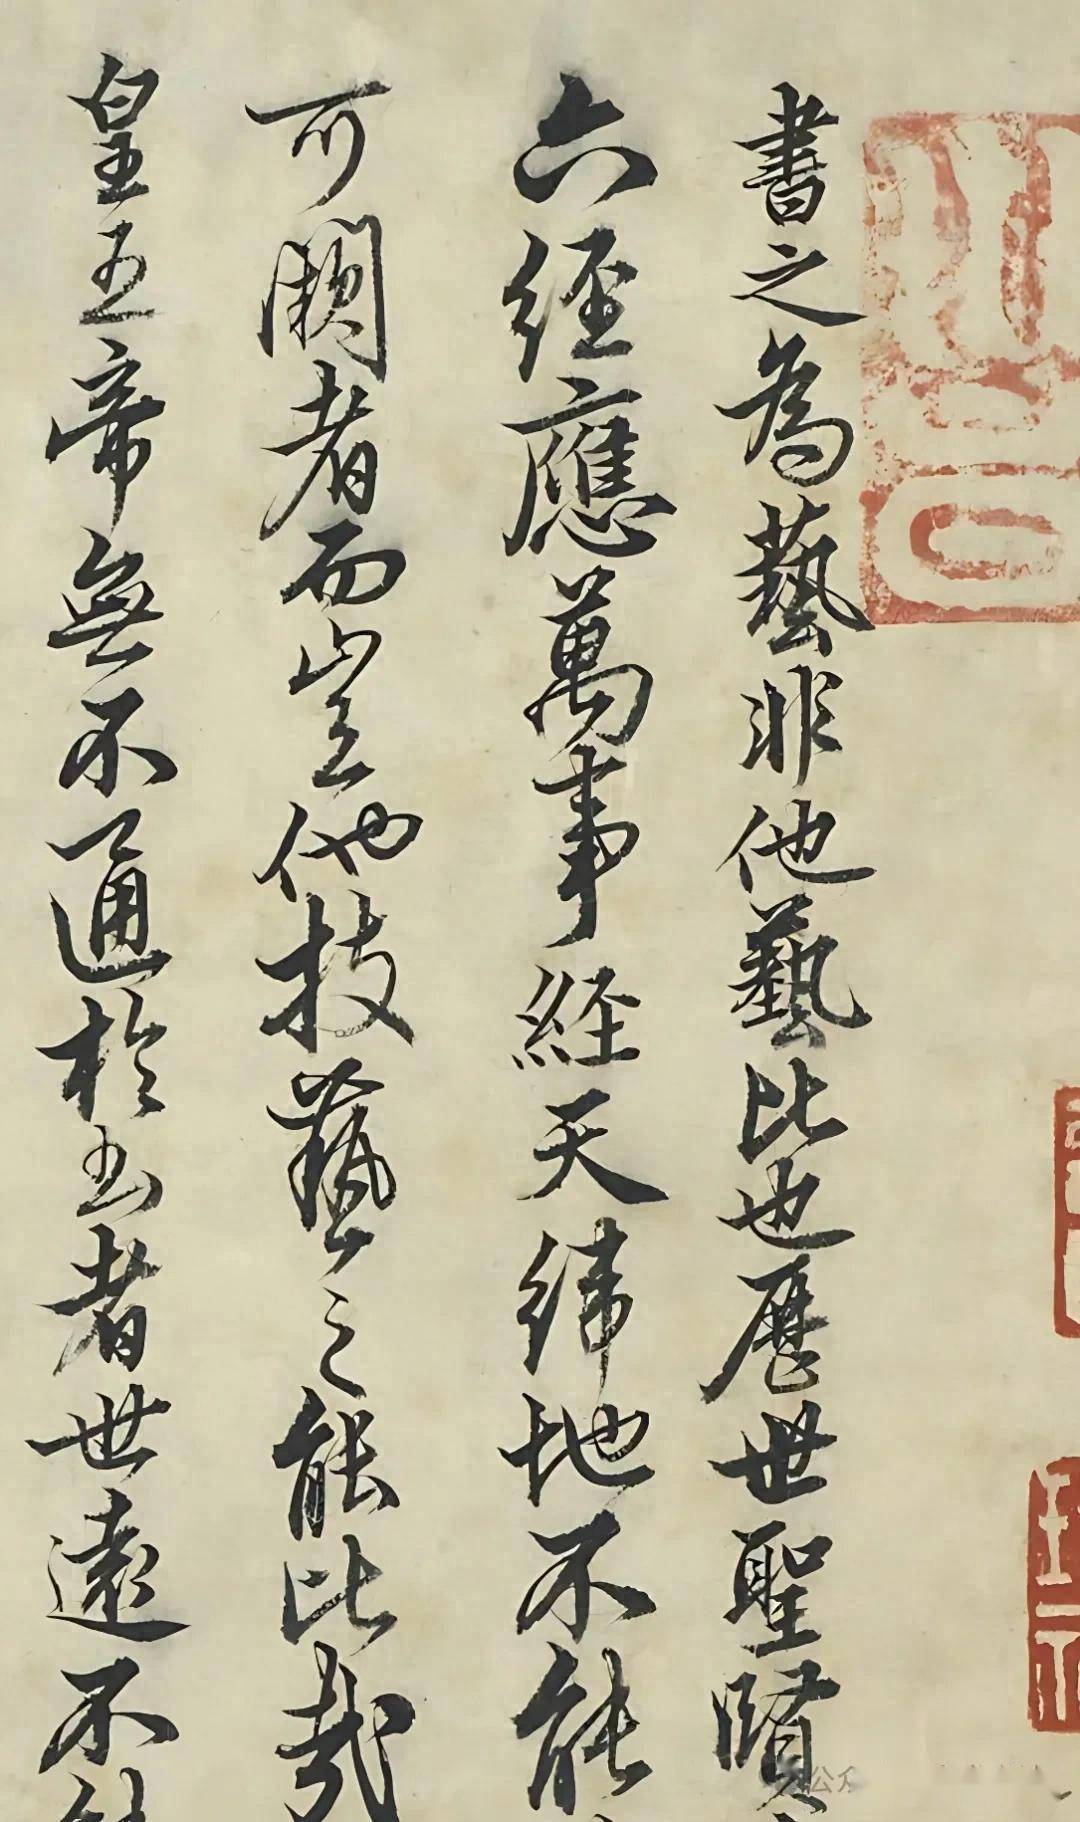 書之為藝非他藝比也歷世聖賢
六經應萬事經天緯地不能
可闕者而豈他技藝之能比哉
皇五帝無不通於書者世遠不
公众